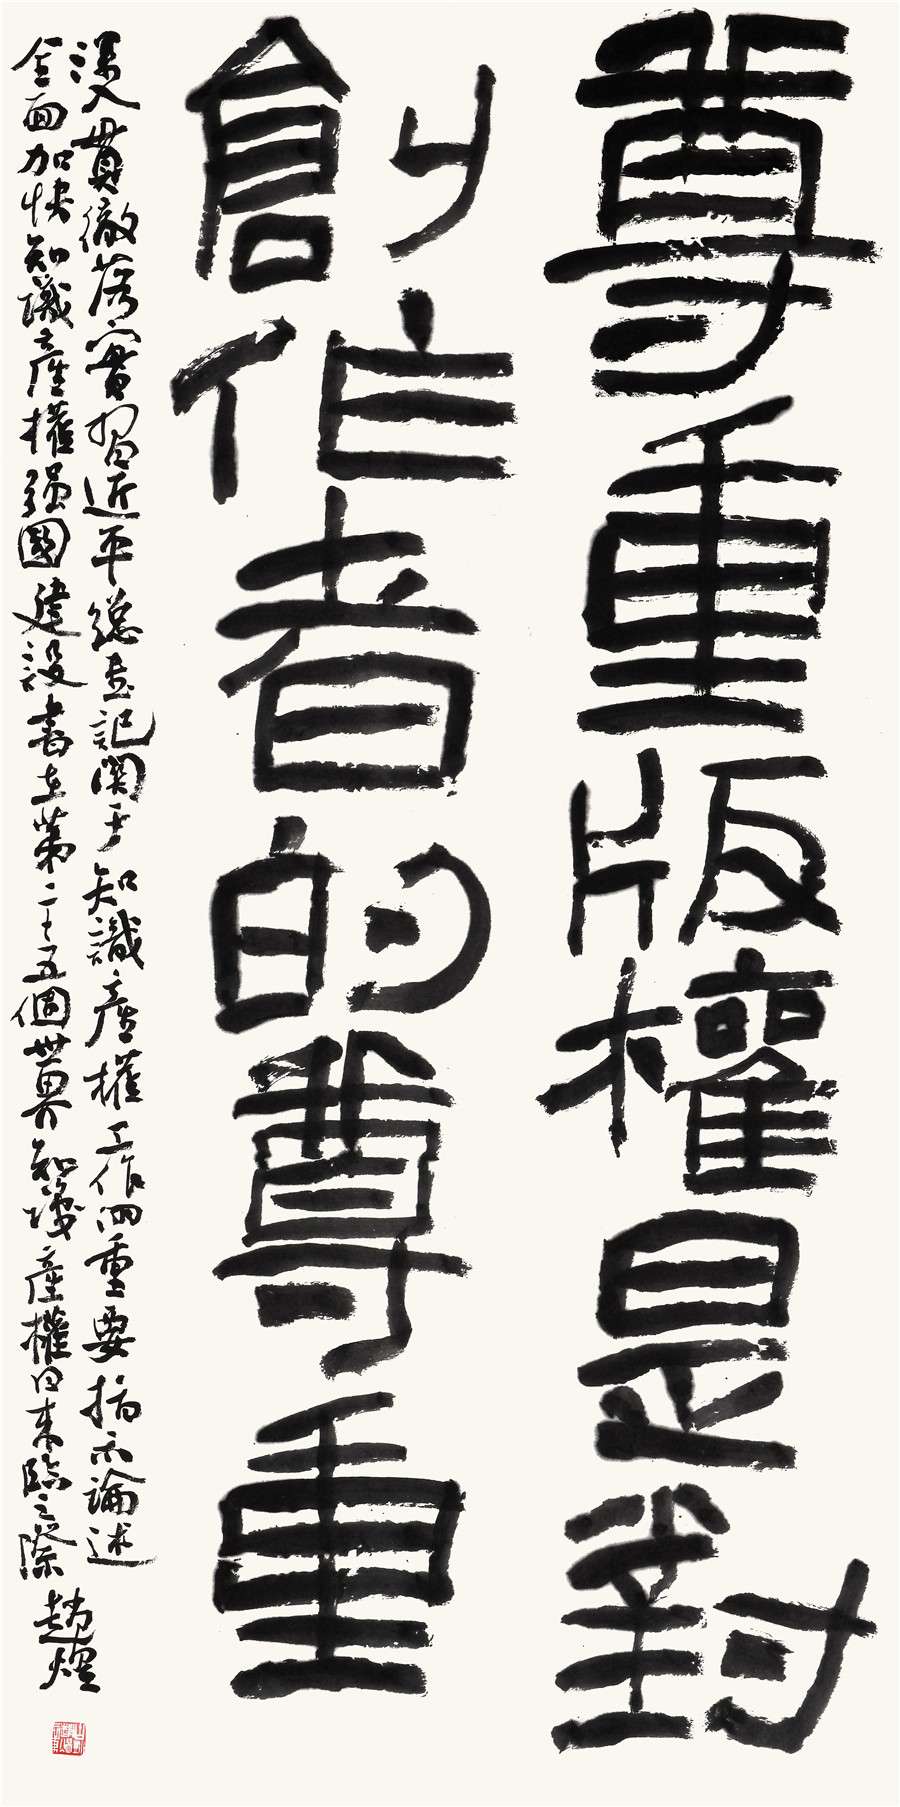 尊重版權是對
創作者的尊重
深入貫徹落實習近平總書記關于知識產權工作的重要指示論述
全面加快知識產權强國建設書在第二十五個世界知識產權日來臨之際 趙煜